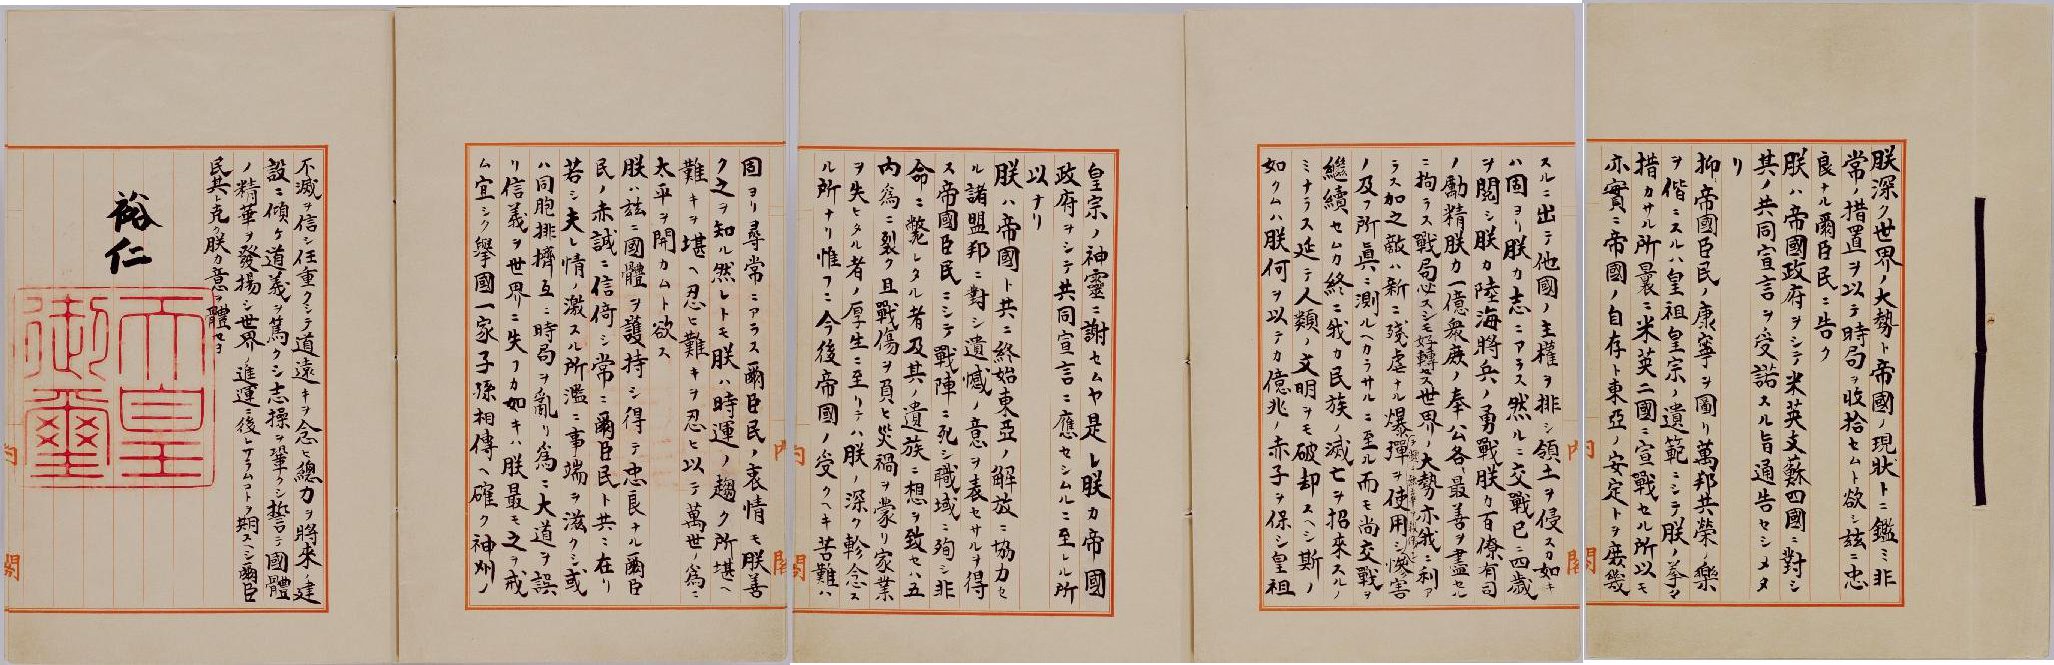 朕深ク世界ノ大勢ト帝國ノ現狀トニ鑑ミ非
常ノ措置ヲ以テ時局ヲ收拾セムト欲シ茲ニ忠
良ナル爾臣民ニ告ク
朕ハ帝國政府ヲシテ米英支蘇四國ニ對シ
其ノ共同宣言ヲ受諾スル旨通告セシメタ
リ
抑〻帝國臣民ノ康寧ヲ圖リ萬邦共榮ノ樂
ヲ偕ニスルハ皇祖皇宗ノ遺範ニシテ朕ノ拳〻
措カサル所曩ニ米英二國ニ宣戰セル所以モ
亦實ニ帝國ノ自存ト東亞ノ安定トヲ庶幾
スルニ出テ他國ノ主權ヲ排シ領土ヲ侵スカ如キ
ハ固ヨリ朕カ志ニアラス然ルニ交戰已ニ四歲
ヲ閱シ朕カ陸海將兵ノ勇戰朕カ百僚有司
ノ勵精朕カ一億衆庶ノ奉公各〻最善ヲ盡セル
ニ拘ラス戰局必スシモ好轉セス世界ノ大勢亦我ニ利ア
ラス加之敵ハ新ニ殘虐ナル爆彈ヲ使用シテ
頻ニ無辜ヲ殺傷シ
慘害
ノ及フ所眞ニ測ルヘカラサルニ至ル而モ尚交戰ヲ
繼續セムカ終ニ我カ民族ノ滅亡ヲ招來スルノ
ミナラス延テ人類ノ文明ヲモ破却スヘシ斯ノ
如クムハ朕何ヲ以テカ億兆ノ赤子ヲ保シ皇祖
皇宗ノ神靈ニ謝セムヤ是レ朕カ帝國
政府ヲシテ共同宣言ニ應セシムルニ至レル所
以ナリ
朕ハ帝國ト共ニ終始東亞ノ解放ニ協力セ
ル諸盟邦ニ對シ遺憾ノ意ヲ表セサルヲ得
ス帝國臣民ニシテ戰陣ニ死シ職域ニ殉シ非
命ニ斃レタル者及其ノ遺族ニ想ヲ致セハ五
內爲ニ裂ク且戰傷ヲ負ヒ災禍ヲ蒙リ家業
ヲ失ヒタル者ノ厚生ニ至リテハ朕ノ深ク軫念ス
ル所ナリ惟フニ今後帝國ノ受クヘキ苦難ハ
固ヨリ尋常ニアラス爾臣民ノ衷情モ朕善
ク之ヲ知ル然レトモ朕ハ時運ノ趨ク所堪ヘ
難キヲ堪ヘ忍ヒ難キヲ忍ヒ以テ萬世ノ爲ニ
太平ヲ開カムト欲ス
朕ハ茲ニ國體ヲ護持シ得テ忠良ナル爾臣
民ノ赤誠ニ信倚シ常ニ爾臣民ト共ニ在リ
若シ夫レ情ノ激スル所濫ニ事端ヲ滋クシ或
ハ同胞排擠互ニ時局ヲ亂リ爲ニ大道ヲ誤
リ信義ヲ世界ニ失フカ如キハ朕最モ之ヲ戒
ム宜シク擧國一家子孫相傳ヘ確ク神州ノ
不滅ヲ信シ任重クシテ道遠キヲ念ヒ總力ヲ將來ノ建
設ニ傾ケ道義ヲ篤クシ志操ヲ鞏クシ誓テ國體
ノ精華ヲ發揚シ世界ノ進運ニ後レサラムコトヲ期スヘシ爾臣
民其レ克ク朕カ意ヲ體セヨ
裕仁
天皇
御璽
內閣
內閣